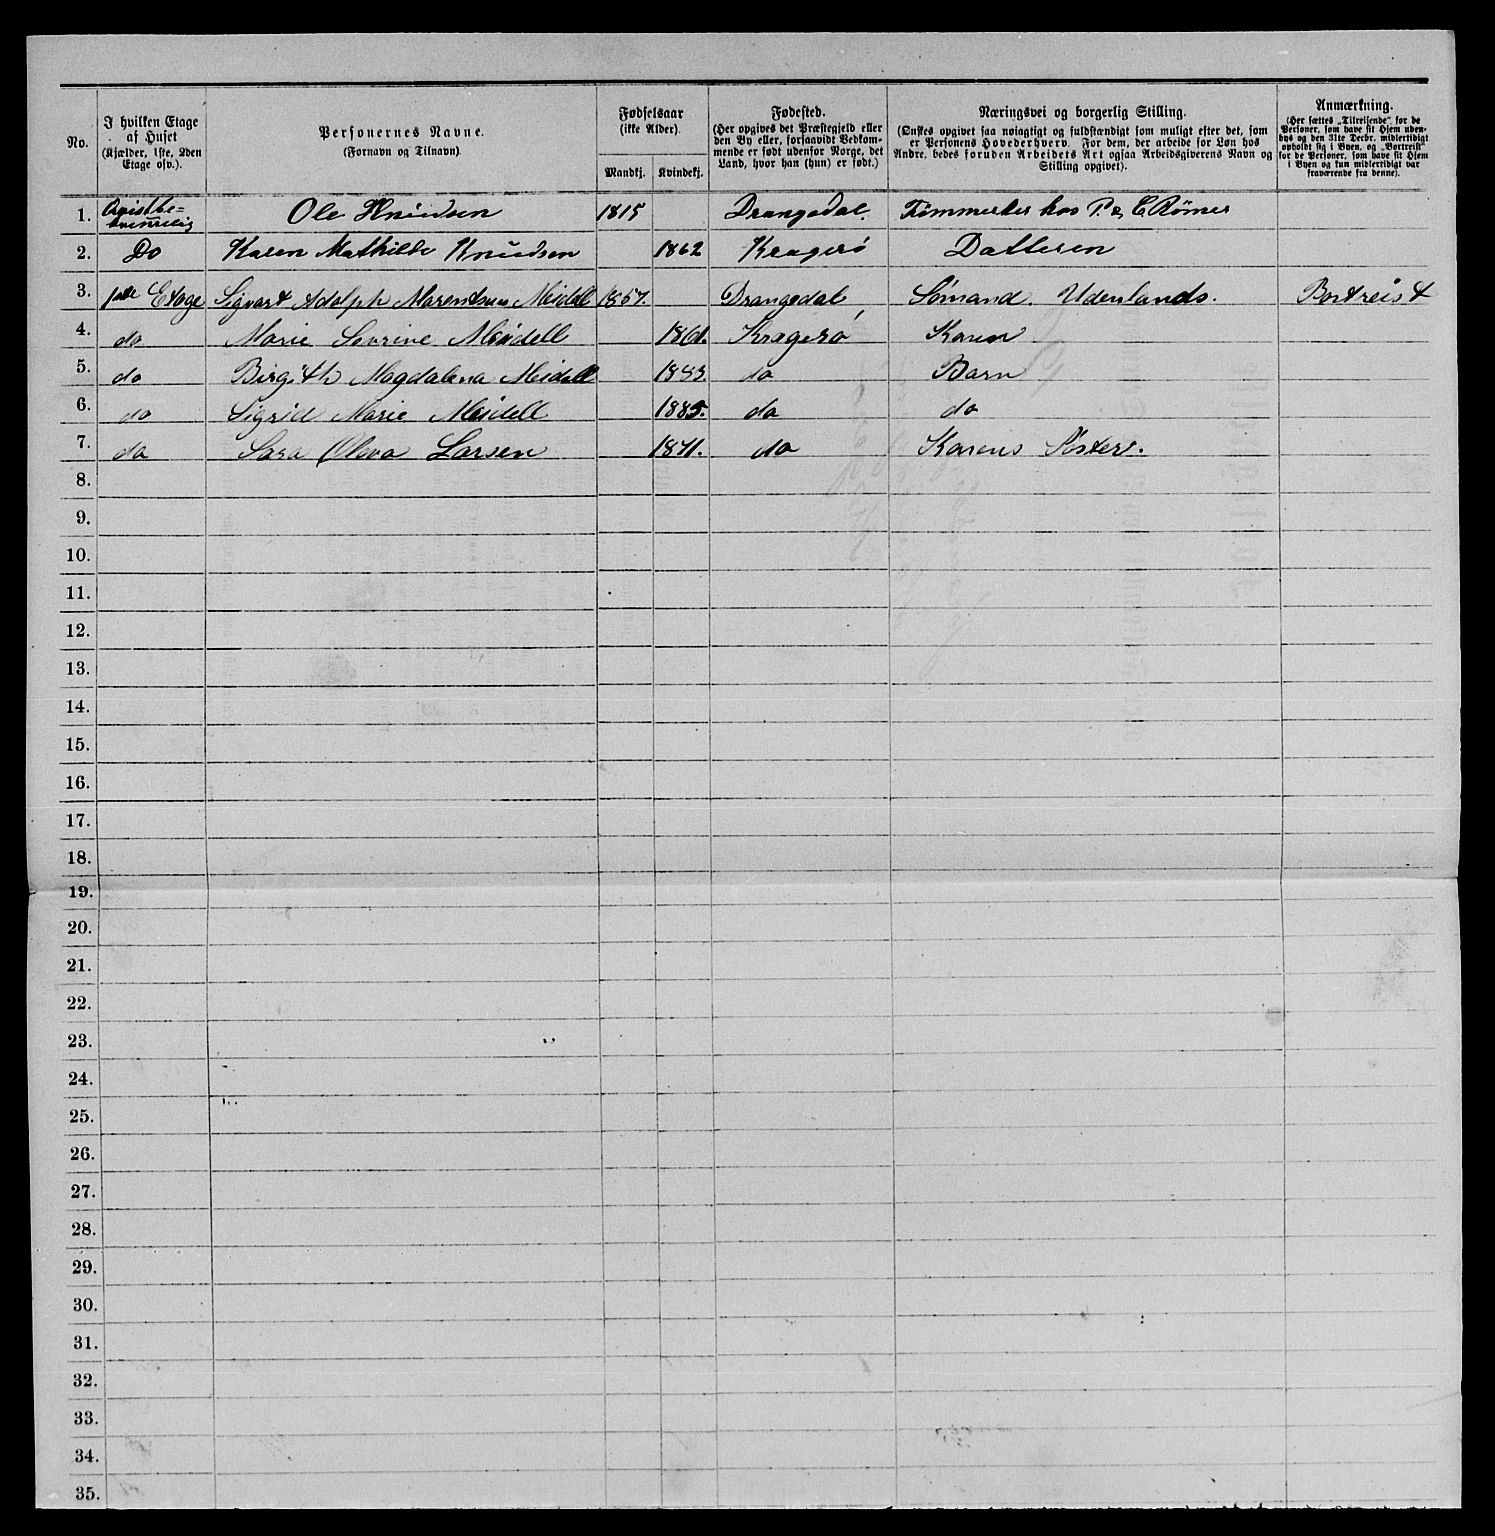 No.
I hvilken Etage
af Huset
(Kjælder, 1ste, 2den
Etage osv.).
Personernes Navne.
(Fornavn og Tilnavn).
Fødselsaar
(ikke Alder).
Mandkj.
Kvindekj.
Fødested.
(Her opgives det Præstegjeld eller
den By eller, forsaavidt Vedkom-
mende er født udenfor Norge, det
Land, hvor han (hun) er født.)
Næringsvei og borgerlig Stilling.
(Ønskes opgivet saa nøiagtigt og fuldstændigt som muligt efter det, som
er Personens Hovederhverv. For dem, der arbeide for Løn hos
Andre, bedes foruden Arbeidets Art ogsaa Arbeidsgiverens Navn og
Stilling opgivet).
Anmærkning.
(Her sættes „Tilreisende" for de
Personer, som have sit Hjem uden-
bys og den 31te Decbr. midlertidigt
opholdt sig i Byen, og „Bortreist"
for de Personer, som have sit Hjem
i Byen og kun midlertidigt var
fraværende fra denne).
1. Ole Knudsen 1815 Drangedal. Tømmerker hos P. & C Römer
2. Do Karen Mathilde Knudsen 1862 Kragerö Datteren
3. 1ste Etage Sigvart Adolph Marentsius Meidell 1857. Drangedal, Sömand. Udenlands. Bortreist
4. do Marie Sevrine Meidell 1861. Kragerö Konen
5. do Birgith Magdalena Meidell 1883. do Barn
6. do Sigrid Marie Meidell 1885. do do
7. do Sara Oleva Larsen 1871. do Konens Söster.
8.
9.
10.
11.
12.
13.
14.
15.
16.
17.
18.
19.
20.
21.
22.
23.
24.
25.
26.
27.
28.
29.
30.
31.
32.
33.
34.
35.